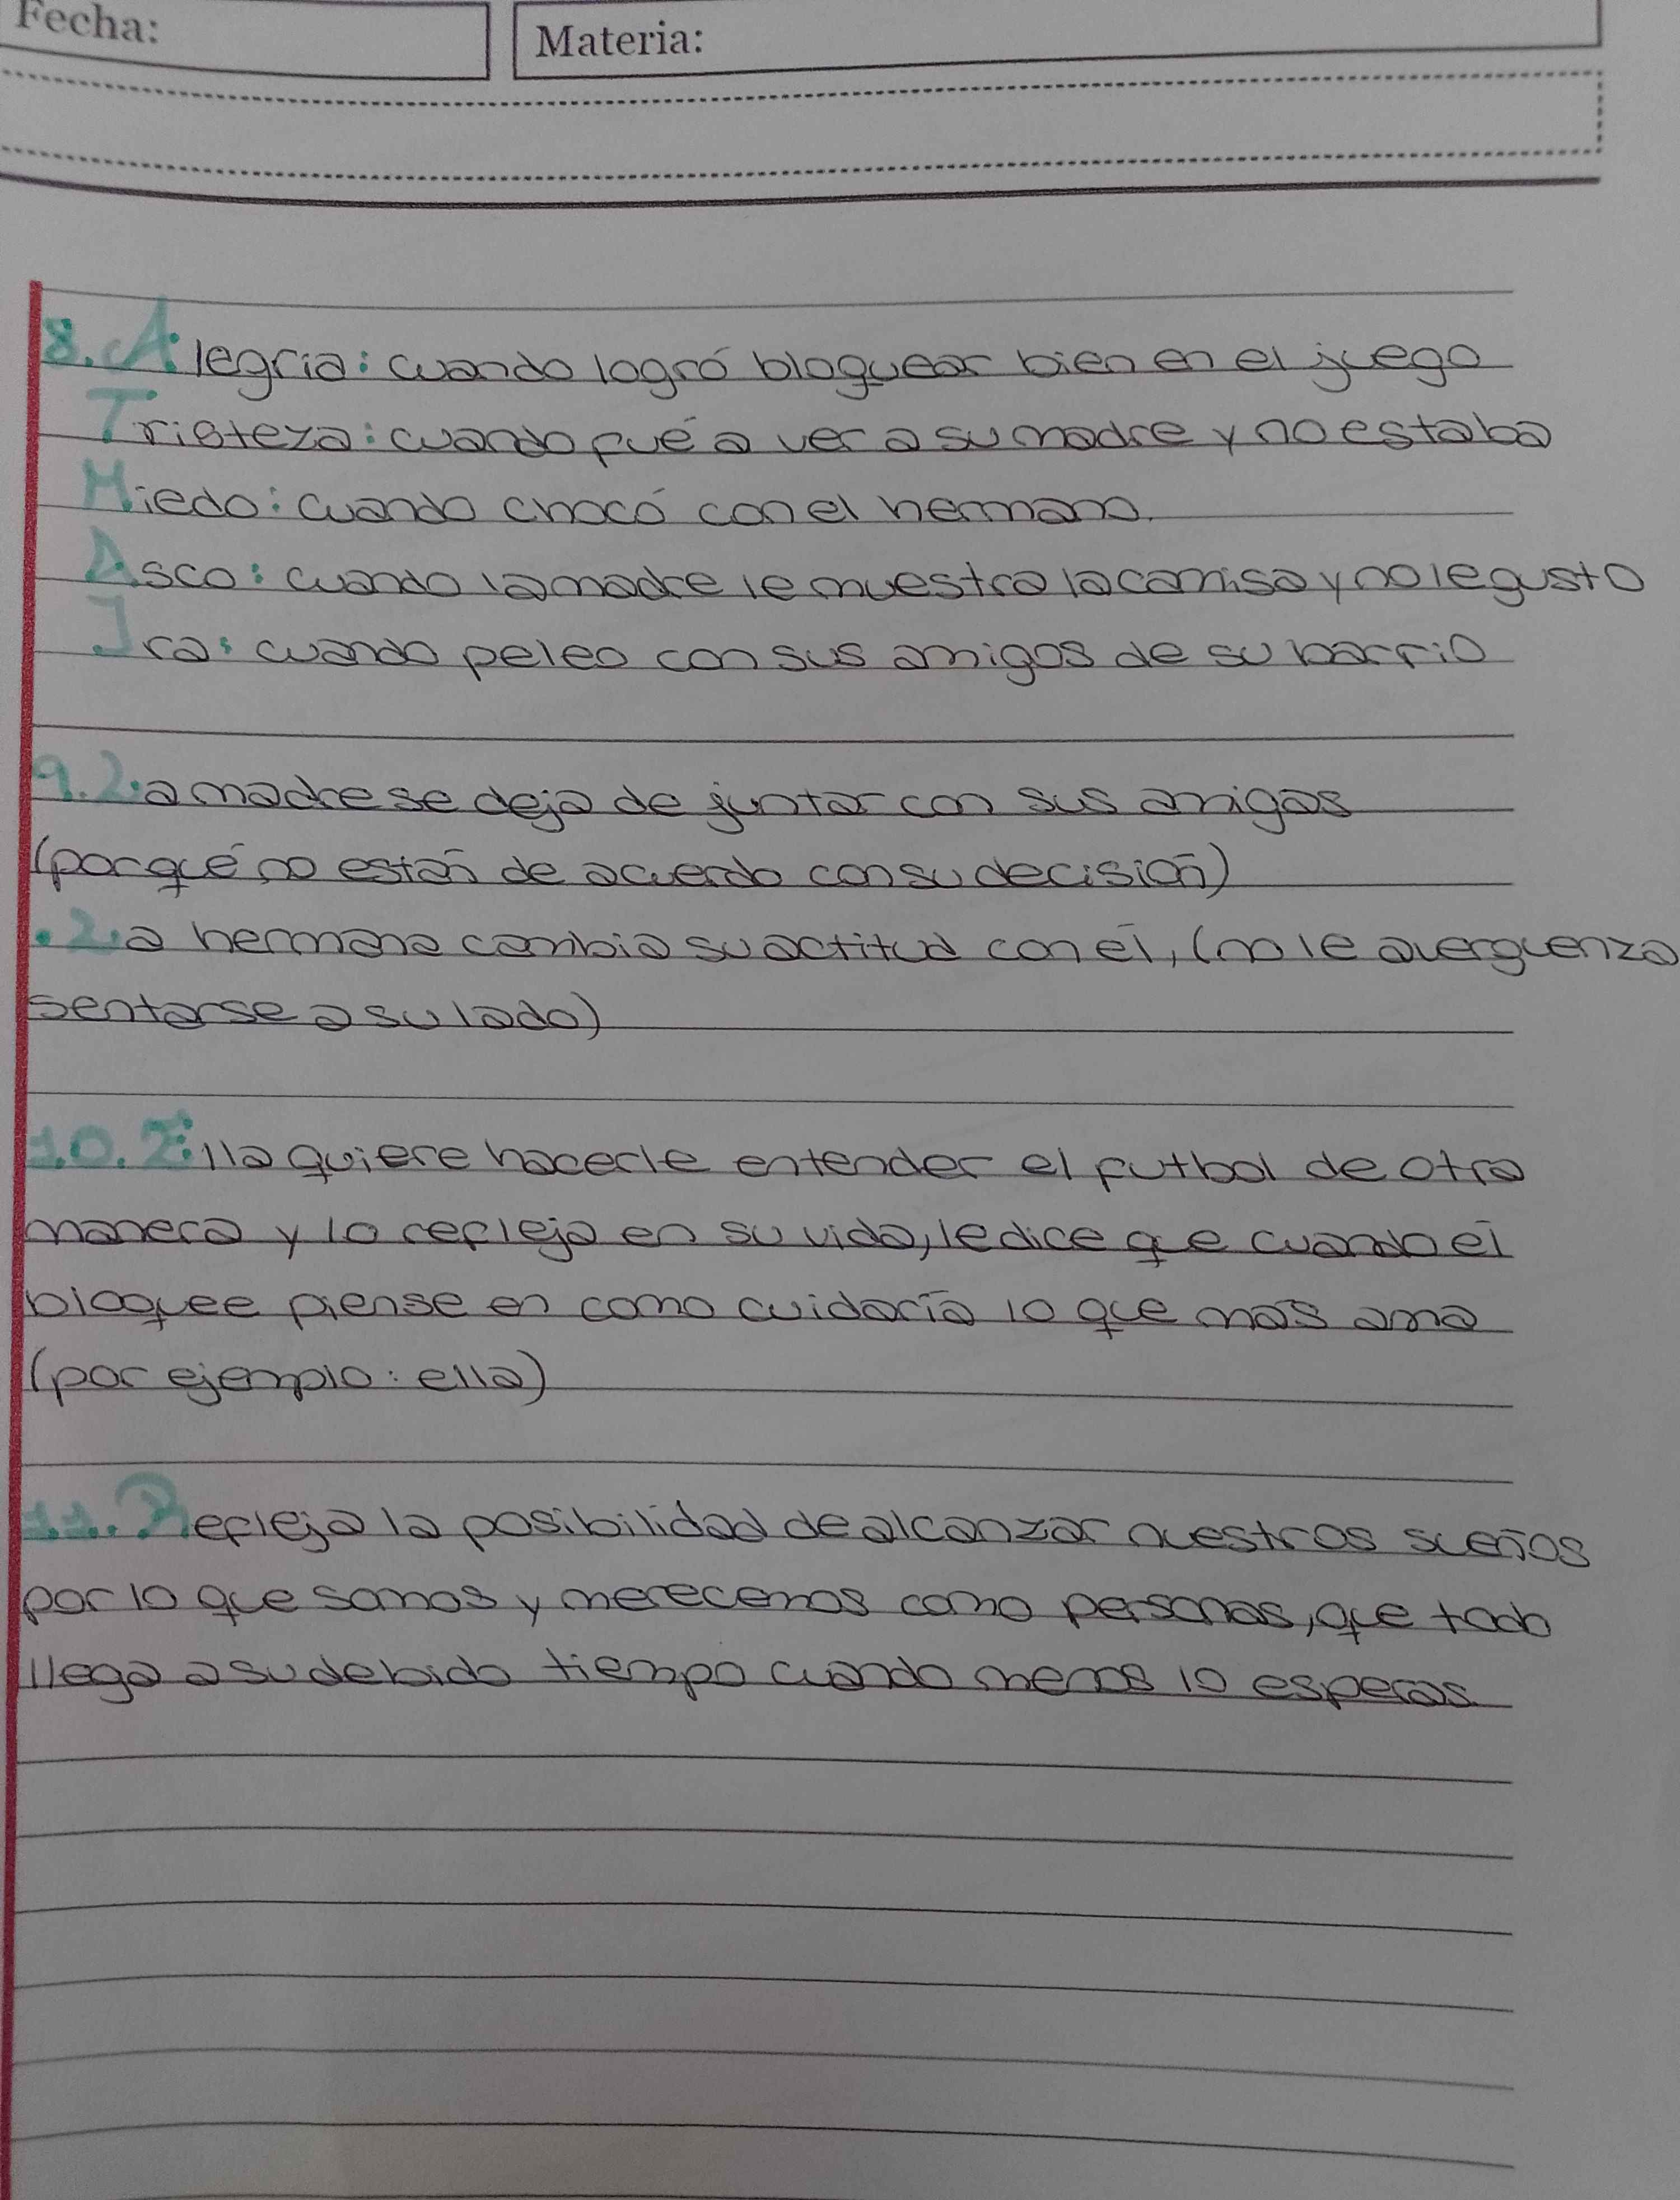 Fecha:
Materia:
8. Alegria: cuando logró bloquear bien en el juego
Tristeza: cuando fué a ver a su madre y no estaba
Miedo: cuando chocó con el hermano.
Asco: cuando la madre le muestra la camisa y no le gusto
Ira: cuando peleo con sus amigos de su barrio
9. La madre se deja de juntar con sus amigas
(porqué no están de acuerdo con su decisión)
. La hermana cambia su actitud con él, (no le averguenza
sentarse a su lado)
10. Ella quiere hacerle entender el futbol de otra
manera y lo refleja en su vida, le dice que cuando él
bloquee piense en como cuidaría lo que más ama
(por ejemplo: ella)
11. Refleja la posibilidad de alcanzar nuestros sueños
por lo que somos y merecemos como personas, que todo
llega a su debido tiempo cuando menos lo esperas.